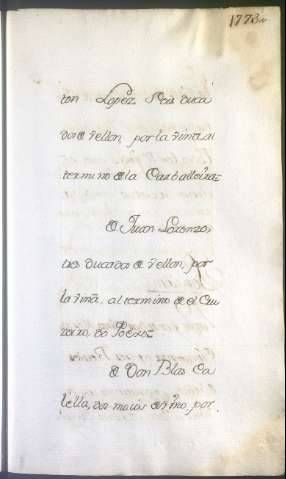 1773
ton Lopez Dos duca
dos de vellon, por la viña, al
termino de la Carballeira=
De Juan Lorenzo,
tres ducados de vellon, por
la viña, al termino de el Cru
zeiro do
de Don Blas Ca
lella, dos moios de vino, por